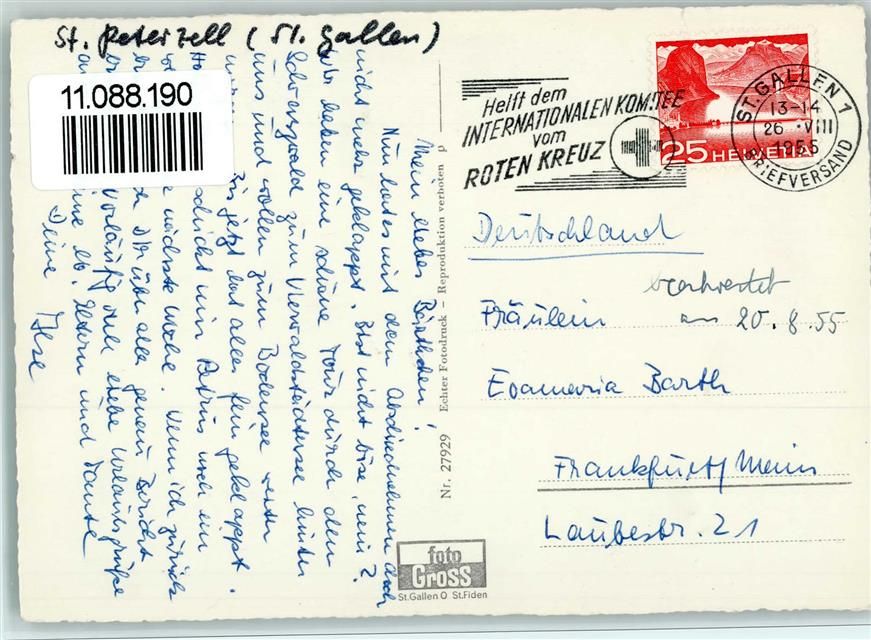 St. Peterzell (St. Gallen)
11.088.190
Mein liebes Bärthchen!
Nun hat es mit dem Abschiednehmen doch
nicht mehr geklappt. Bist nicht böse, nein?
Wir haben eine schöne Tour durch den
Schwarzwald zum Vierwaldstädtersee hinter
uns und wollen zum Bodensee
Bis jetzt hat alles fein geklappt.
schickt mir Petrus noch ein
nächste Woche. Wenn ich zurück
Dir über alles genau Bericht
Vorläufig viele liebe Urlaubsgrüße
lb. Eltern und Tante
Deine Ilse
Nr. 27929 Echter Fotodruck – Reproduktion verboten p
foto
Gross
St.Gallen O St.Fiden
Helft dem
INTERNATIONALEN KOMITEE
vom
ROTEN KREUZ
ST. GALLEN 1
13-14
26. VIII
1955
BRIEFVERSAND
25 HELVETIA
Deutschland
beantwortet
am 20.8.55
Fräulein
Evamaria Barth
Frankfurt/Main
Laubestr. 21